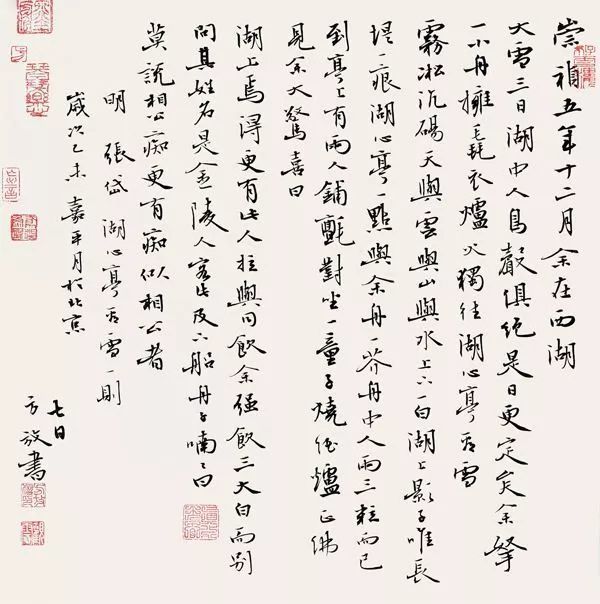 崇禎五年十二月余在西湖
大雪三日湖中人鳥聲俱絕是日更定矣余拏
一小舟擁毳衣爐火獨往湖心亭看雪
霧凇沆碭天與雲與山與水上下一白湖上影子唯長
堤一痕湖心亭一點與余舟一芥舟中人兩三粒而已
到亭上有兩人鋪氈對坐一童子燒酒爐正沸
見余大驚喜曰
湖上焉得更有此人拉與同飲余強飲三大白而別
問其姓名是金陵人客此及下船舟子喃〻曰
莫說相公痴更有痴似相公者
明 張岱 湖心亭看雪一則
歲次乙未嘉平月於北京
七日
方放書